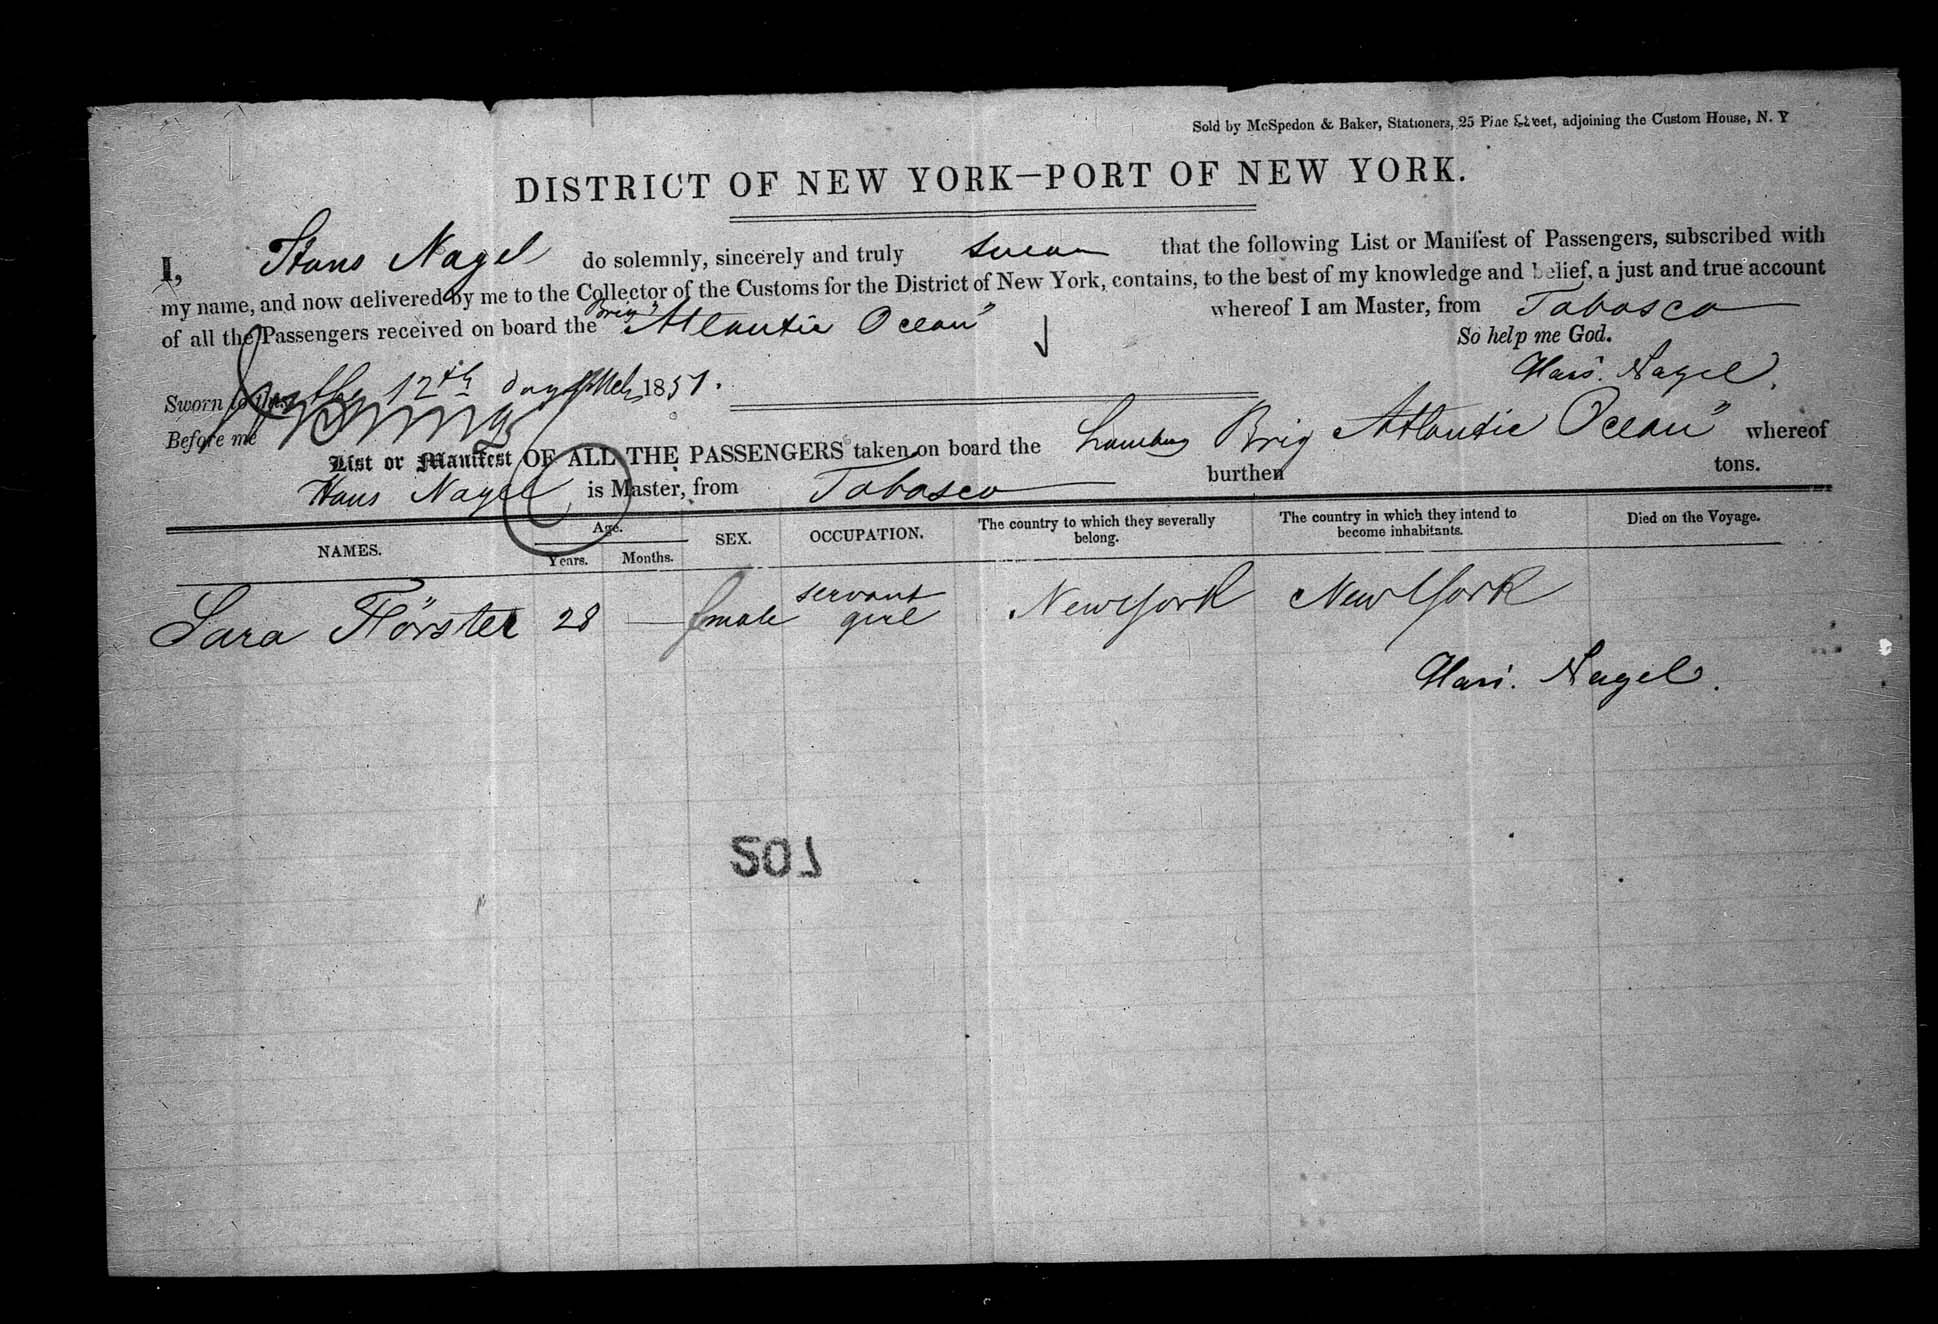 Sold by McSpedon & Baker, Stationers, 25 Pine Street, adjoining the Custom House, N. Y
DISTRICT OF NEW YORK—PORT OF NEW YORK.
I, Hans Nagel do solemnly, sincerely and truly swear that the following List or Manifest of Passengers, subscribed with
my name, and now delivered by me to the Collector of the Customs for the District of New York, contains, to the best of my knowledge and belief, a just and true account
of all the Passengers received on board the Brig "Atlantic Ocean" whereof I am Master, from Tabasco
So help me God.
Hans. Nagel.
Sworn to the 12th day of Mch 1851.
Before me
List or Manifest OF ALL THE PASSENGERS taken on board the Brig Atlantic Ocean" whereof
Hans Nagel is Master, from Tabasco burthen tons.
NAMES. Age. Years. Months. SEX. OCCUPATION. The country to which they severally belong. The country in which they intend to become inhabitants. Died on the Voyage.
Sara Förster 28 — female servant girl New York New York
Hans. Nagel.
102